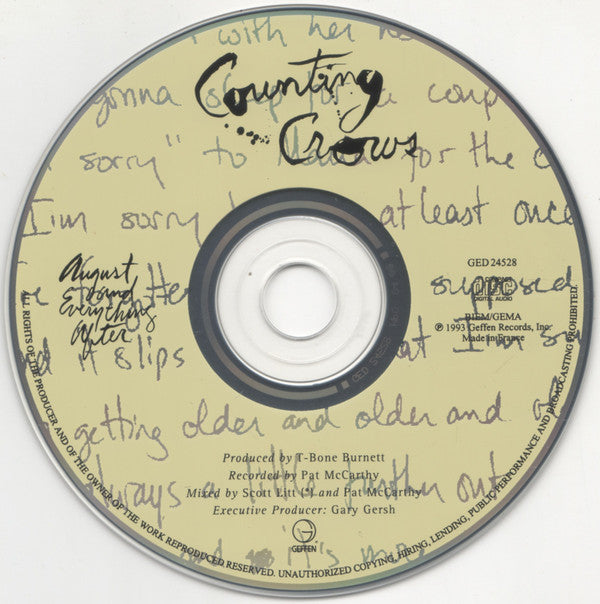 with her
Counting
gonna sleep for a coup
Crows
sorry" to Mama for the c
I'm sorry at least once
August
and
Everything
After
GED 24528
COMPACT
DISC
DIGITAL AUDIO
supposed
BIEM/GEMA
℗ 1993 Geffen Records, Inc.
Made in France
it slips
at I'm
getting older and older and
Produced by T-Bone Burnett
Recorded by Pat McCarthy
always a little further out
Mixed by Scott Litt (*) and Pat McCarthy
Executive Producer: Gary Gersh
GEFFEN
it's mo
ALL RIGHTS OF THE PRODUCER AND OF THE OWNER OF THE WORK REPRODUCED RESERVED. UNAUTHORIZED COPYING, HIRING, LENDING, PUBLIC PERFORMANCE AND BROADCASTING PROHIBITED.